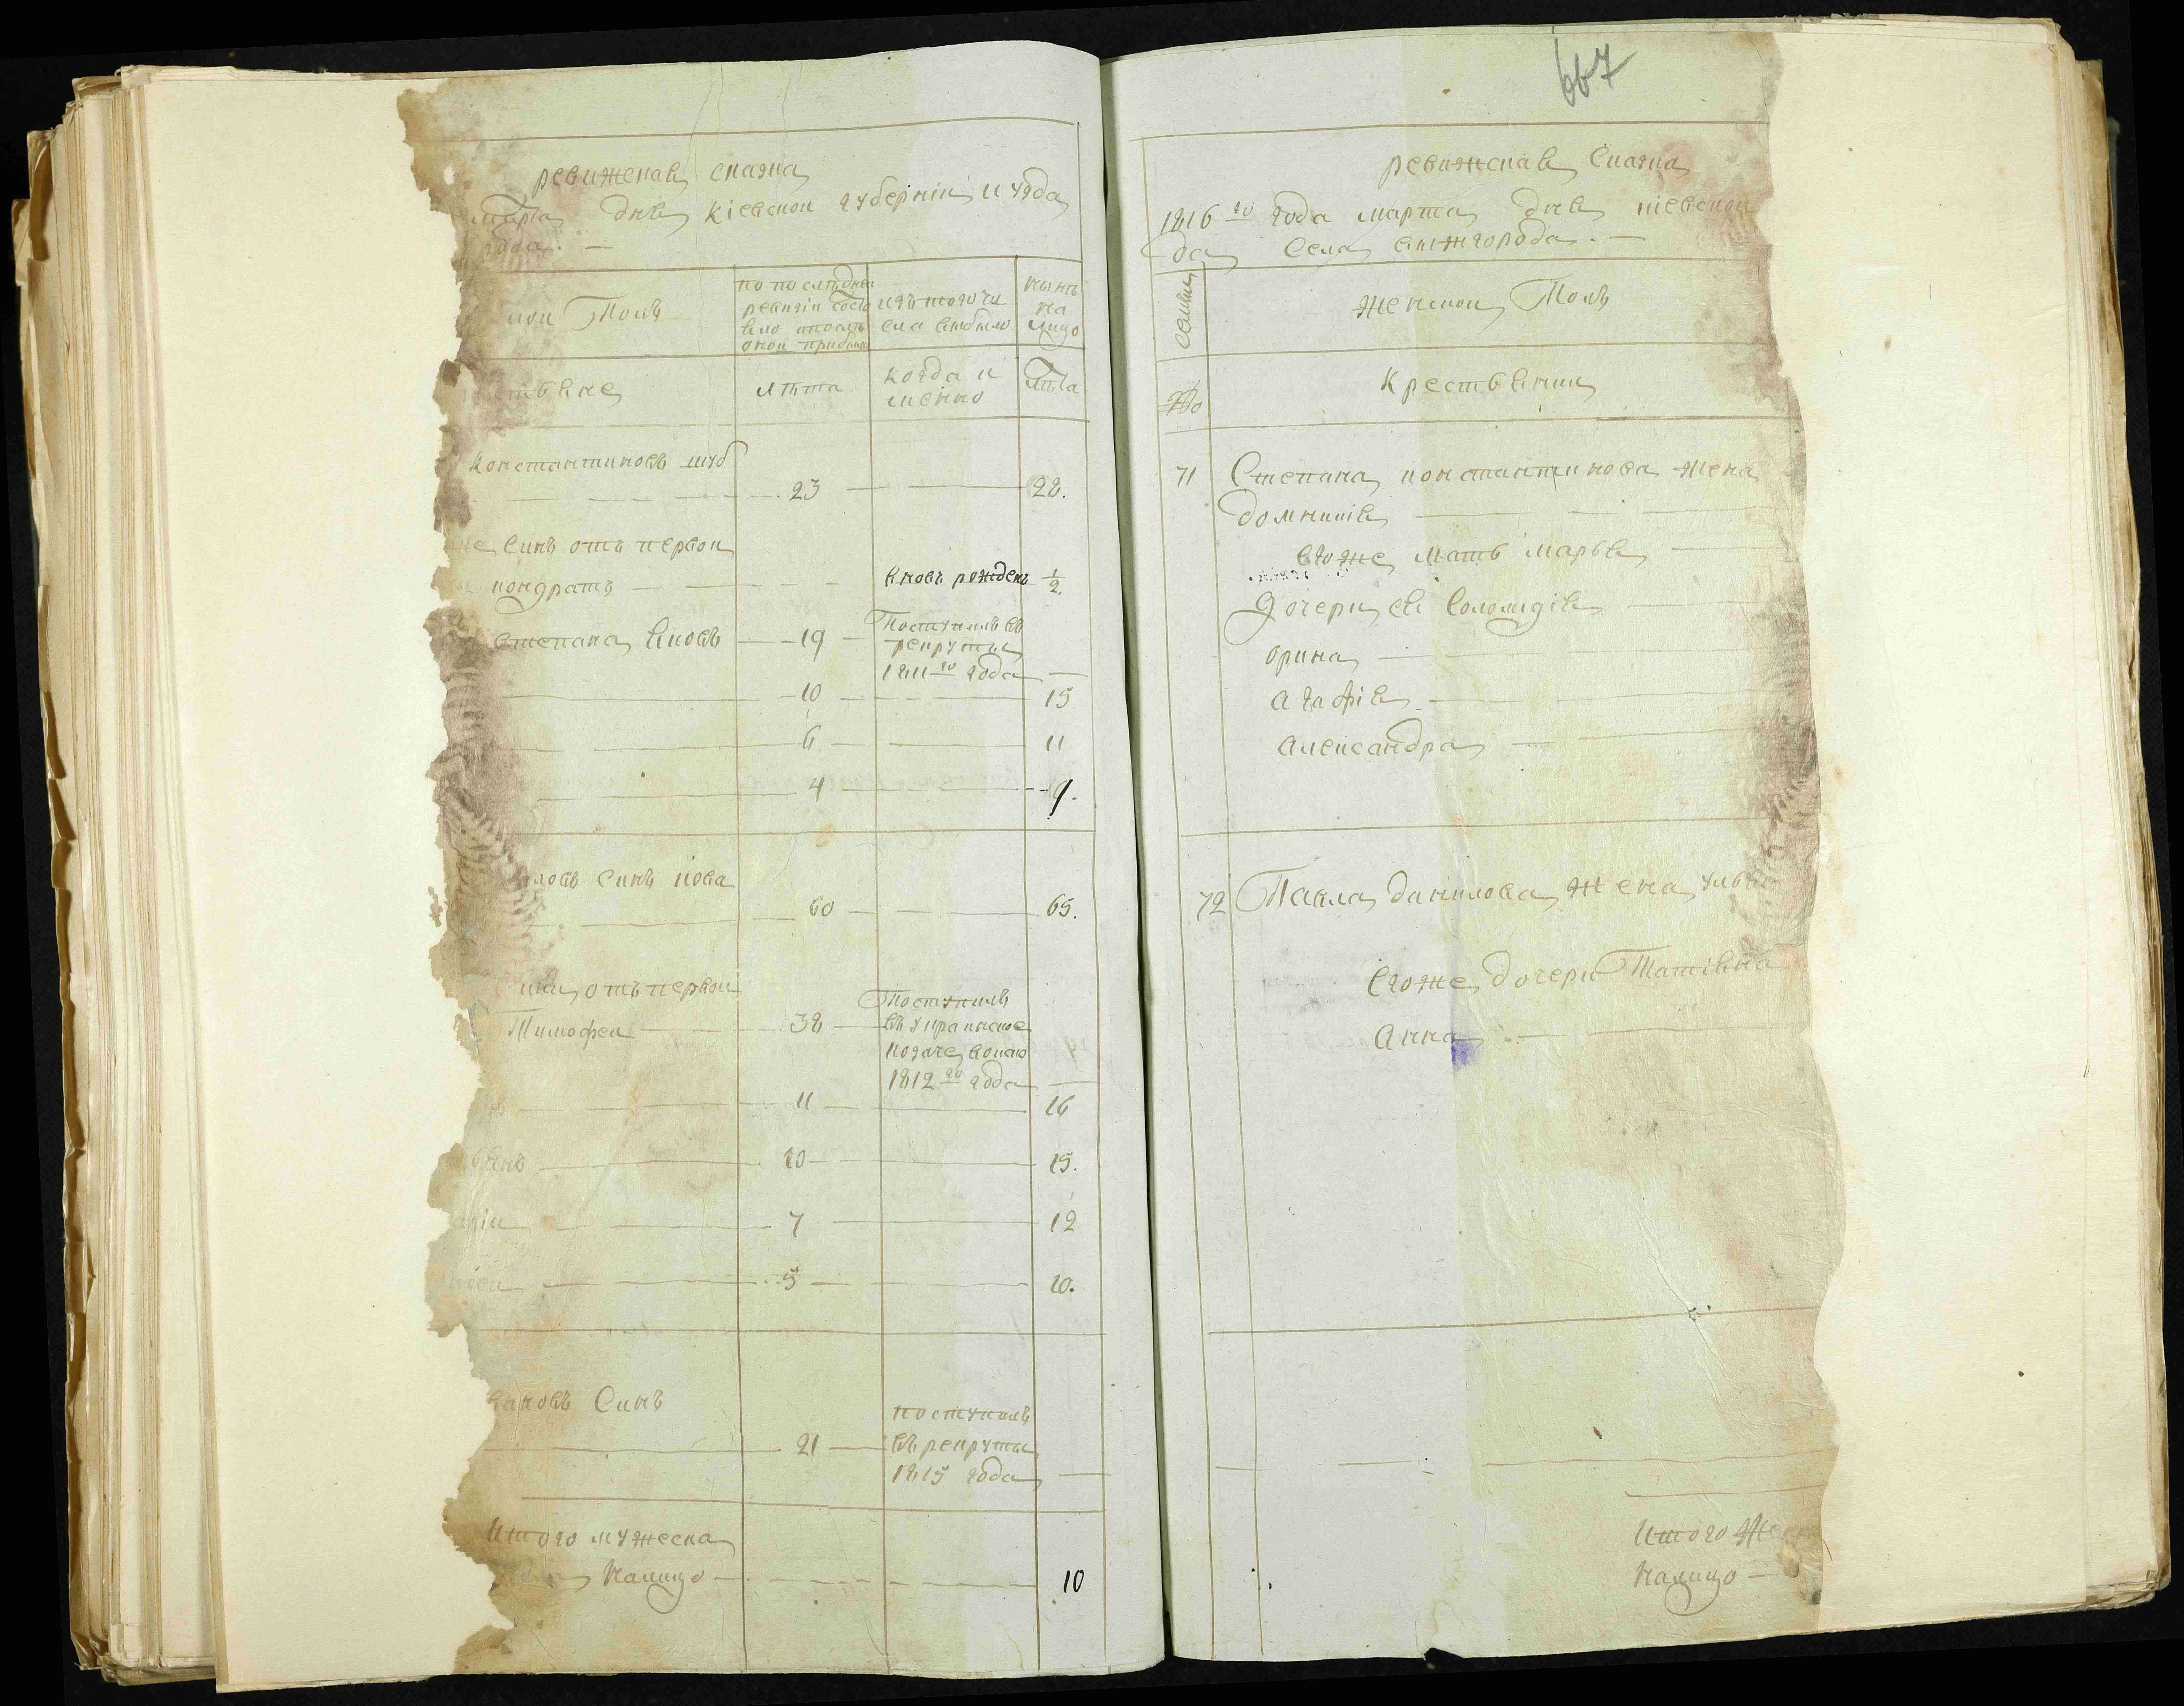 ревижская сказка
марта дня кіевской губерніи и уѣзда
года. —
ной Полъ
по последней
ревизіи состо
яло и послѣ
оной прибыло
изъ того чи
сла выбыло
нынѣ
на
лицо
стьяне
лѣта
когда и
менно
лѣта
константиновъ шуб
23
28.
же синъ отъ первой
кондратъ
вновь рожденъ
1/2.
степана яковъ
19
Поступилъ въ
рекруты
1811го года
10
15
6
11
4
9.
иловъ синъ кова
60
65.
отъ первой
Тимофей
38
Поступилъ
въ украинское
козаче войско
1812го года
11
16
10
15.
7
12
5
10.
ановъ Синъ
21
поступилъ
въ рекруты
1815 года
Итого мужеска
налицо
10
667
ревижская Сказка
1816го года марта дня кіевской
да Села Вижгорода. —
семьи
Женской Полъ
№
Крестьянки
71
Степана константинова жена
домникія
егоже мать марья
Дочери ей Соломидія
орина
агафія
александра
72
Павла данилова жена улья
Егоже дочери Татіяна
анна
Итого Же
налицо